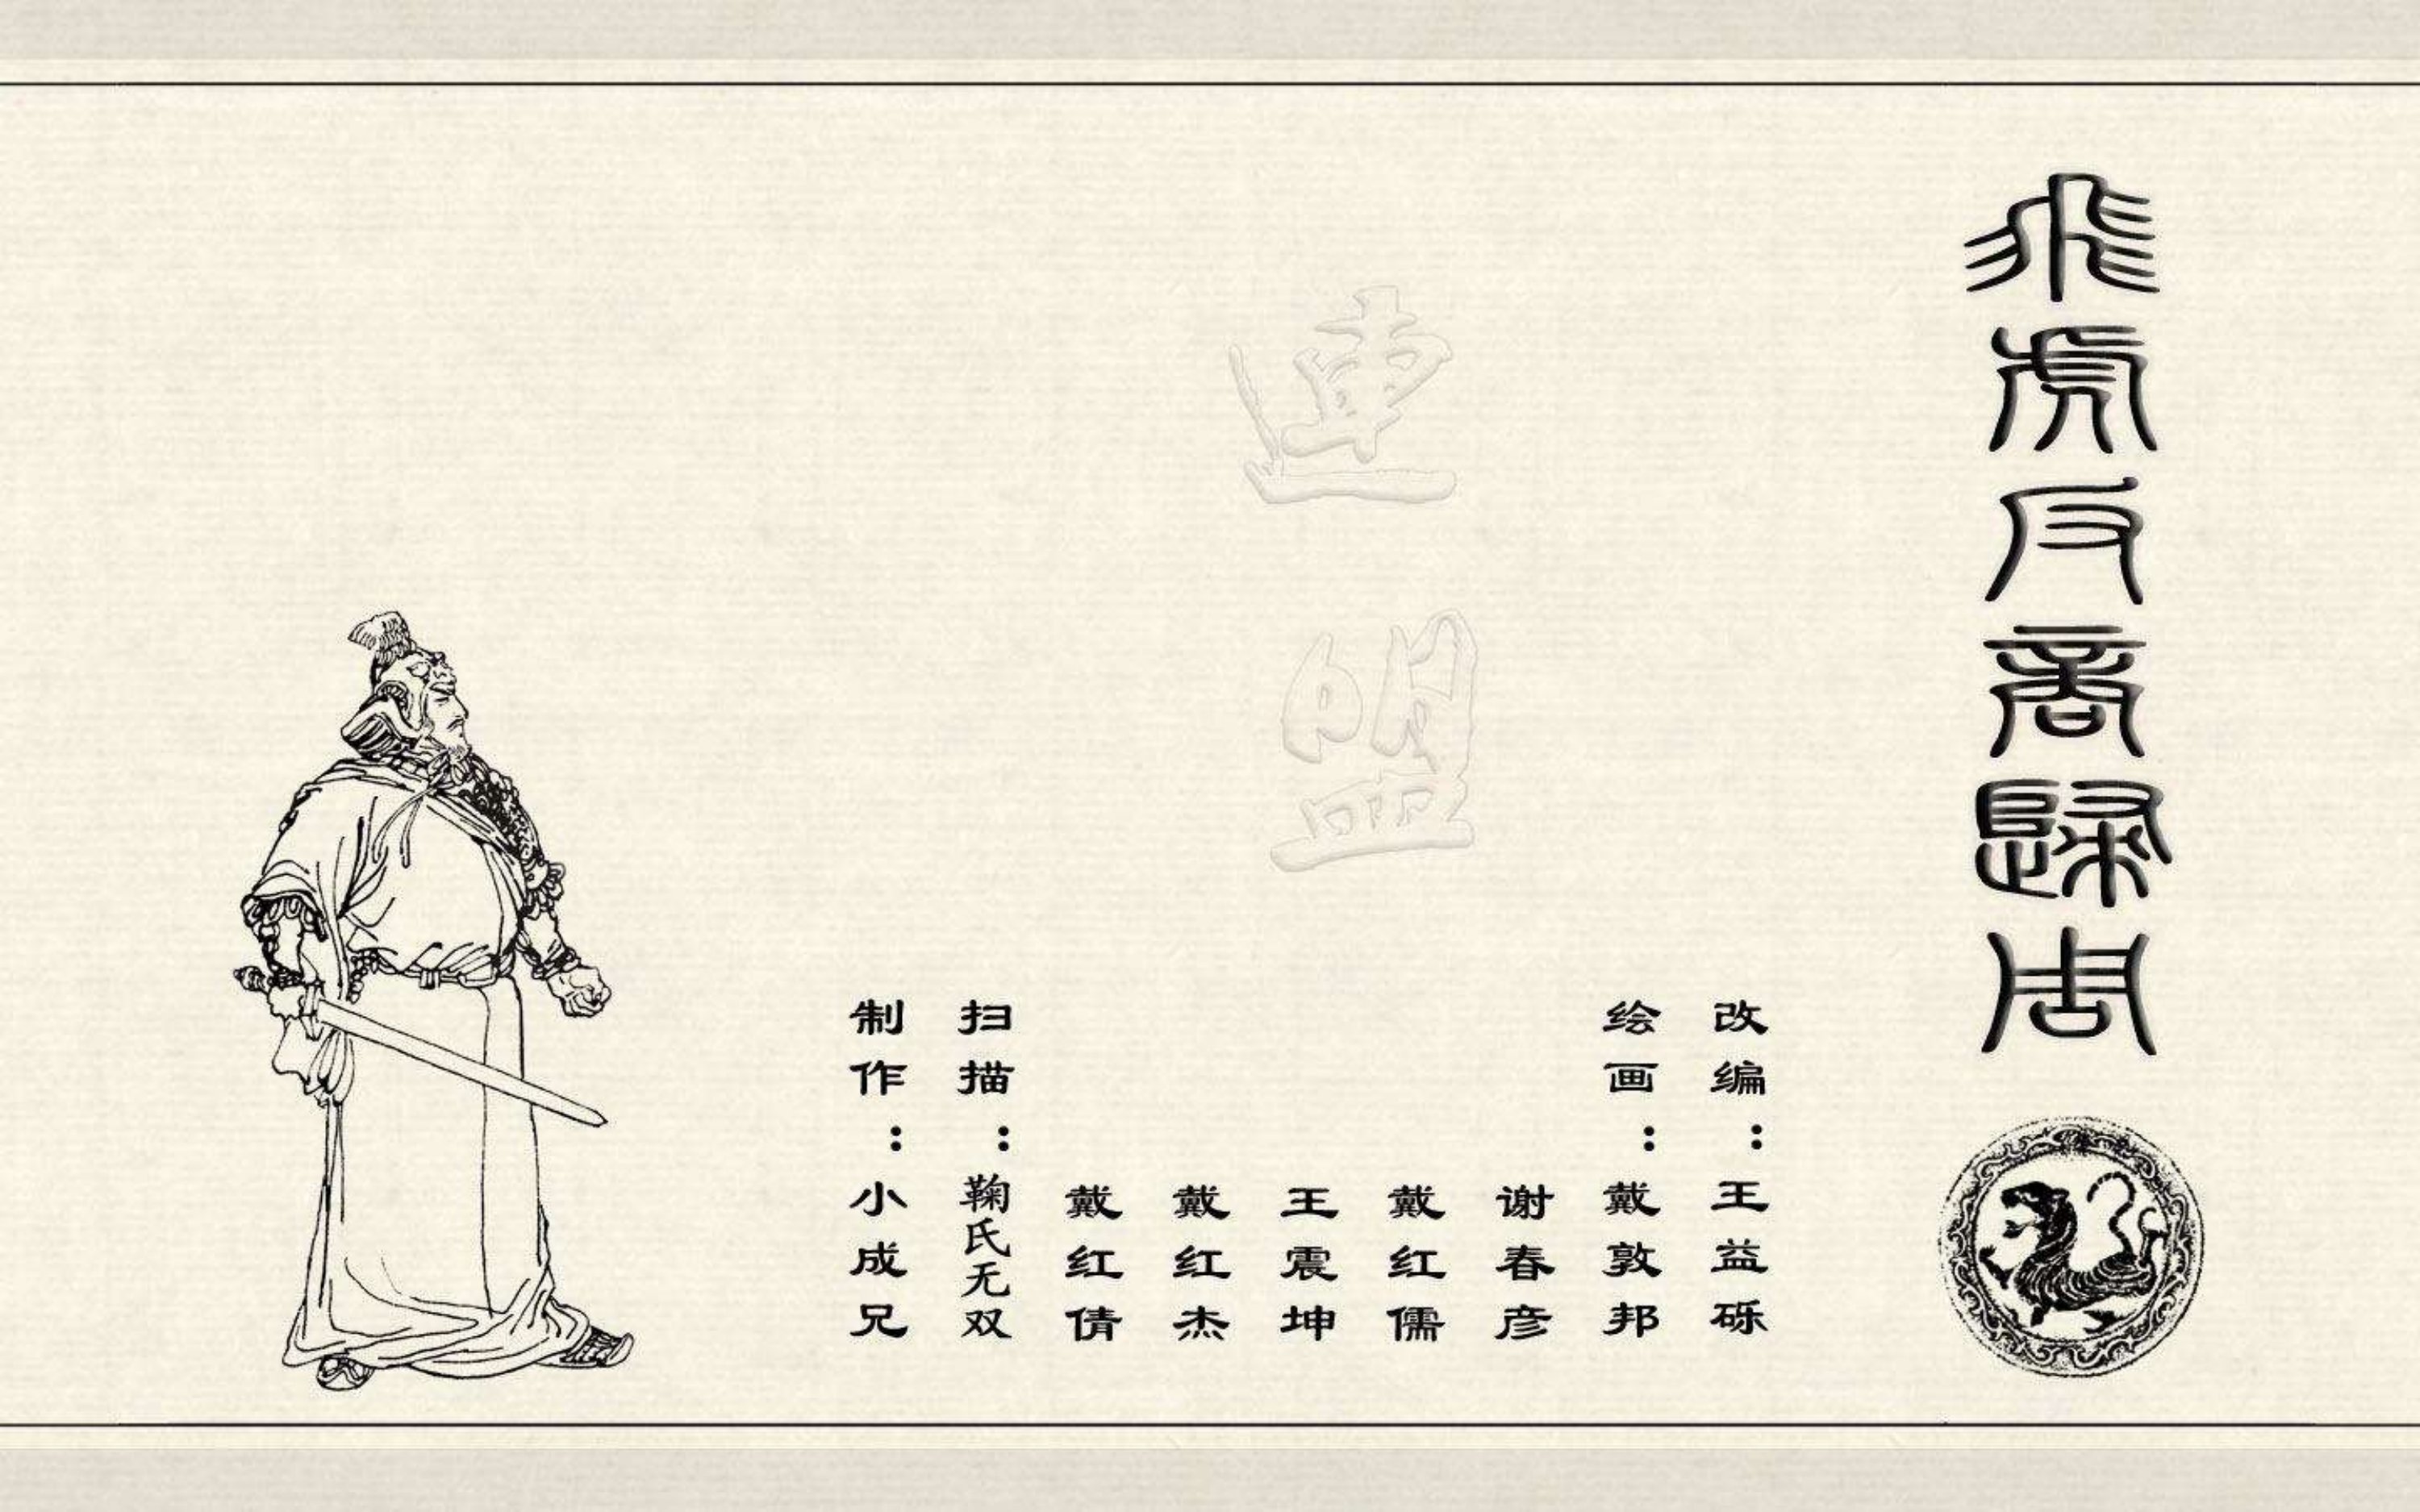 飛虎反商歸周
改编：王益砾
绘画：戴敦邦
谢春彦
戴红儒
王震坤
戴红杰
戴红倩
扫描：鞠氏无双
制作：小成兄
連盟